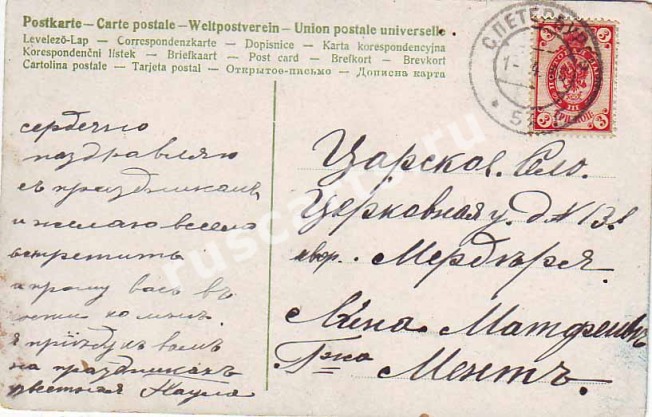 Postkarte — Carte postale — Weltpostverein — Union postale universelle.
Levelezö-Lap — Correspondenzkarte — Dopisnice — Karta korespondencyjna
Korespondenční lístek — Briefkaart — Post card — Brefkort — Brevkort
Cartolina postale — Tarjeta postal — Открытое-письмо — Дописна карта
С.ПЕТЕРБУРГ
3
3
3
3
сердечно
поздравляю
съ праздникомъ
и желаю весело
встретить
и прошу васъ въ
ко мнѣ.
я приѣду къ вамъ
на праздникахъ
Царское. Село.
Церковная у. д № 13.
Лѣна
Г-жа Ментъ.
ruscards.ru